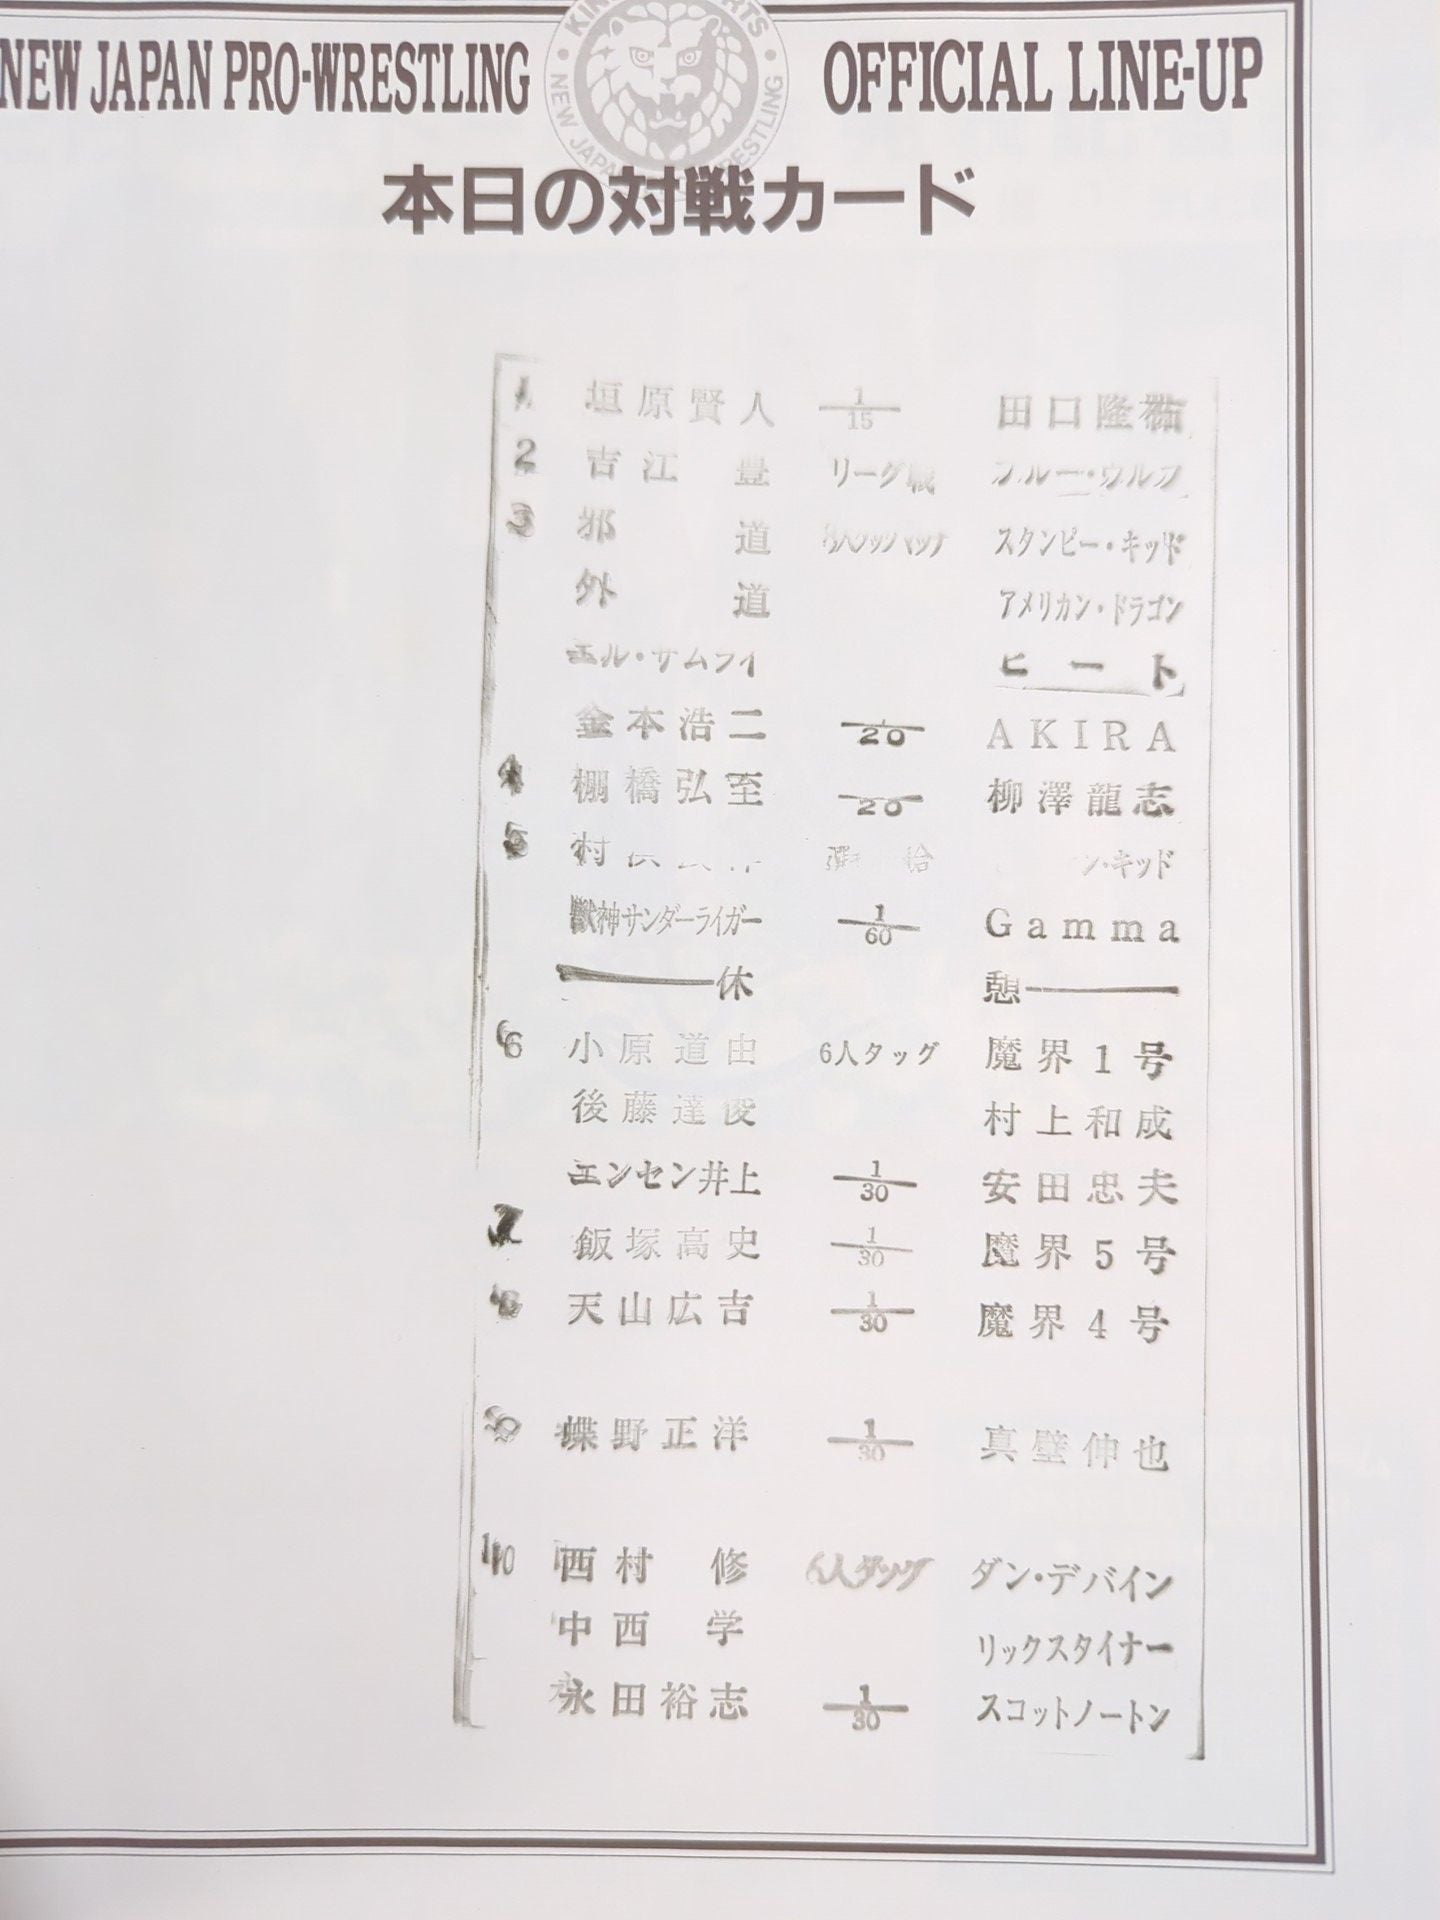 NEW JAPAN PRO-WRESTLING OFFICIAL LINE-UP
NEW JAPAN
本日の対戦カード
1 垣原賢人 1/15 田口隆祐
2 吉江 豊 リーグ戦 ブルー・ウルフ
3 邪 道 8人タッグマッチ スタンピー・キッド
外 道 アメリカン・ドラゴン
エル・サムライ ヒート
金本浩二 /20 AKIRA
4 棚橋弘至 /20 柳澤龍志
5 村 ン・キッド
獣神サンダーライガー 1/60 Gamma
休 憩
6 小原道由 6人タッグ 魔界1号
後藤達俊 村上和成
エンセン井上 1/30 安田忠夫
7 飯塚高史 1/30 魔界5号
8 天山広吉 1/30 魔界4号
9 蝶野正洋 1/30 真壁伸也
10 西村 修 6人タッグ ダン・デバイン
中西 学 リックスタイナー
永田裕志 1/30 スコットノートン